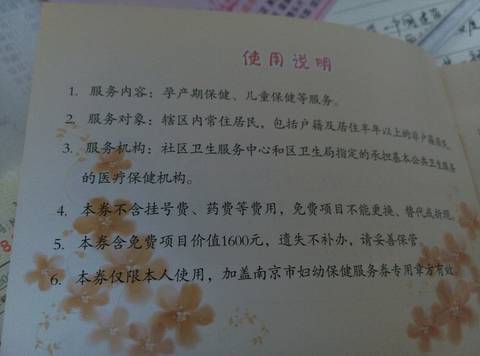 使用说明
1. 服务内容：孕产期保健、儿童保健等服务。
2. 服务对象：辖区内常住居民，包括户籍及居住半年以上的非户籍居民。
3. 服务机构：社区卫生服务中心和区卫生局指定的承担基本公共卫生服务
的医疗保健机构。
4. 本券不含挂号费、药费等费用，免费项目不能更换、替代或折现。
5. 本券含免费项目价值1600元，遗失不补办，请妥善保管。
6. 本券仅限本人使用，加盖南京市妇幼保健服务券专用章方有效。